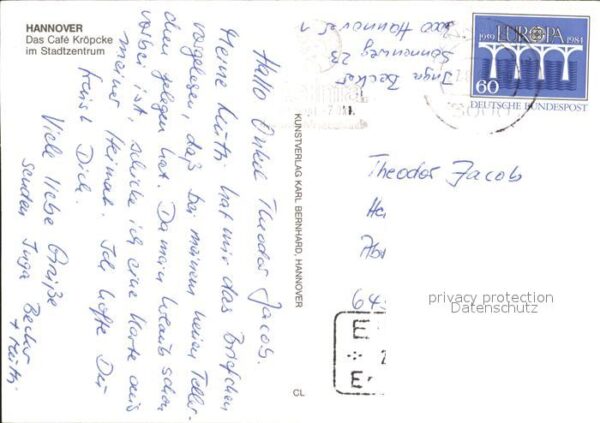 HANNOVER
Das Café Kröpcke
im Stadtzentrum
Hallo Onkel Theodor Jacob.
Meine Mutti hat mir das Briefchen
vorgelesen, daß bei meinem weien Teller-
chen gelegen hat. Da mein Urlaub schon
vorbei ist, schicke ich eine Karte aus
meiner Heimat. Ich hoffe Du
freust Dich.
Viele liebe Grüße
senden Inga Becker
+ Mutti
KUNSTVERLAG KARL BERNHARD, HANNOVER
CL
Inga Becker
Sonnenweg 23
3000 Hannover 1
1959 EUROPA 1984
60
DEUTSCHE BUNDESPOST
Theodor Jacob
privacy protection
Datenschutz